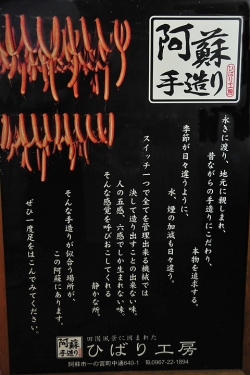 阿蘇
手造り
ひばり工房
永きに渡り、地元に親しまれ、
昔ながらの手造りにこだわり、
本物を追求する。
季節が日々違うように、
水、煙の加減も日々違う。
スイッチ一つで全てを管理出来る機械では
決して造り出すことの出来ない味。
人の五感、六感でしか生まれない味。
そんな感覚を呼びおこしてくれる
静かな所。
そんな手造りが似合う場所が、
この阿蘇にあります。
ぜひ一度足をはこんでみてください。
阿蘇
手造り
田園風景に囲まれた
ひばり工房
阿蘇市一の宮町中通640-1 TEL0967-22-1894